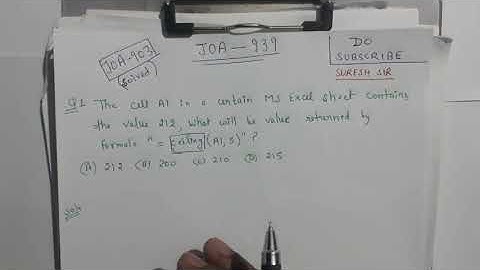 JOA-903
(solved)
JOA - 939
DO
SUBSCRIBE
SURESH SIR
Q1. The cell A1 in a certain MS Excel sheet contains
the value 212, what will be value returned by
formula "= Ceiling (A1, 5)" ?
(A) 212 (B) 200 (C) 210 (D) 215.
Soln